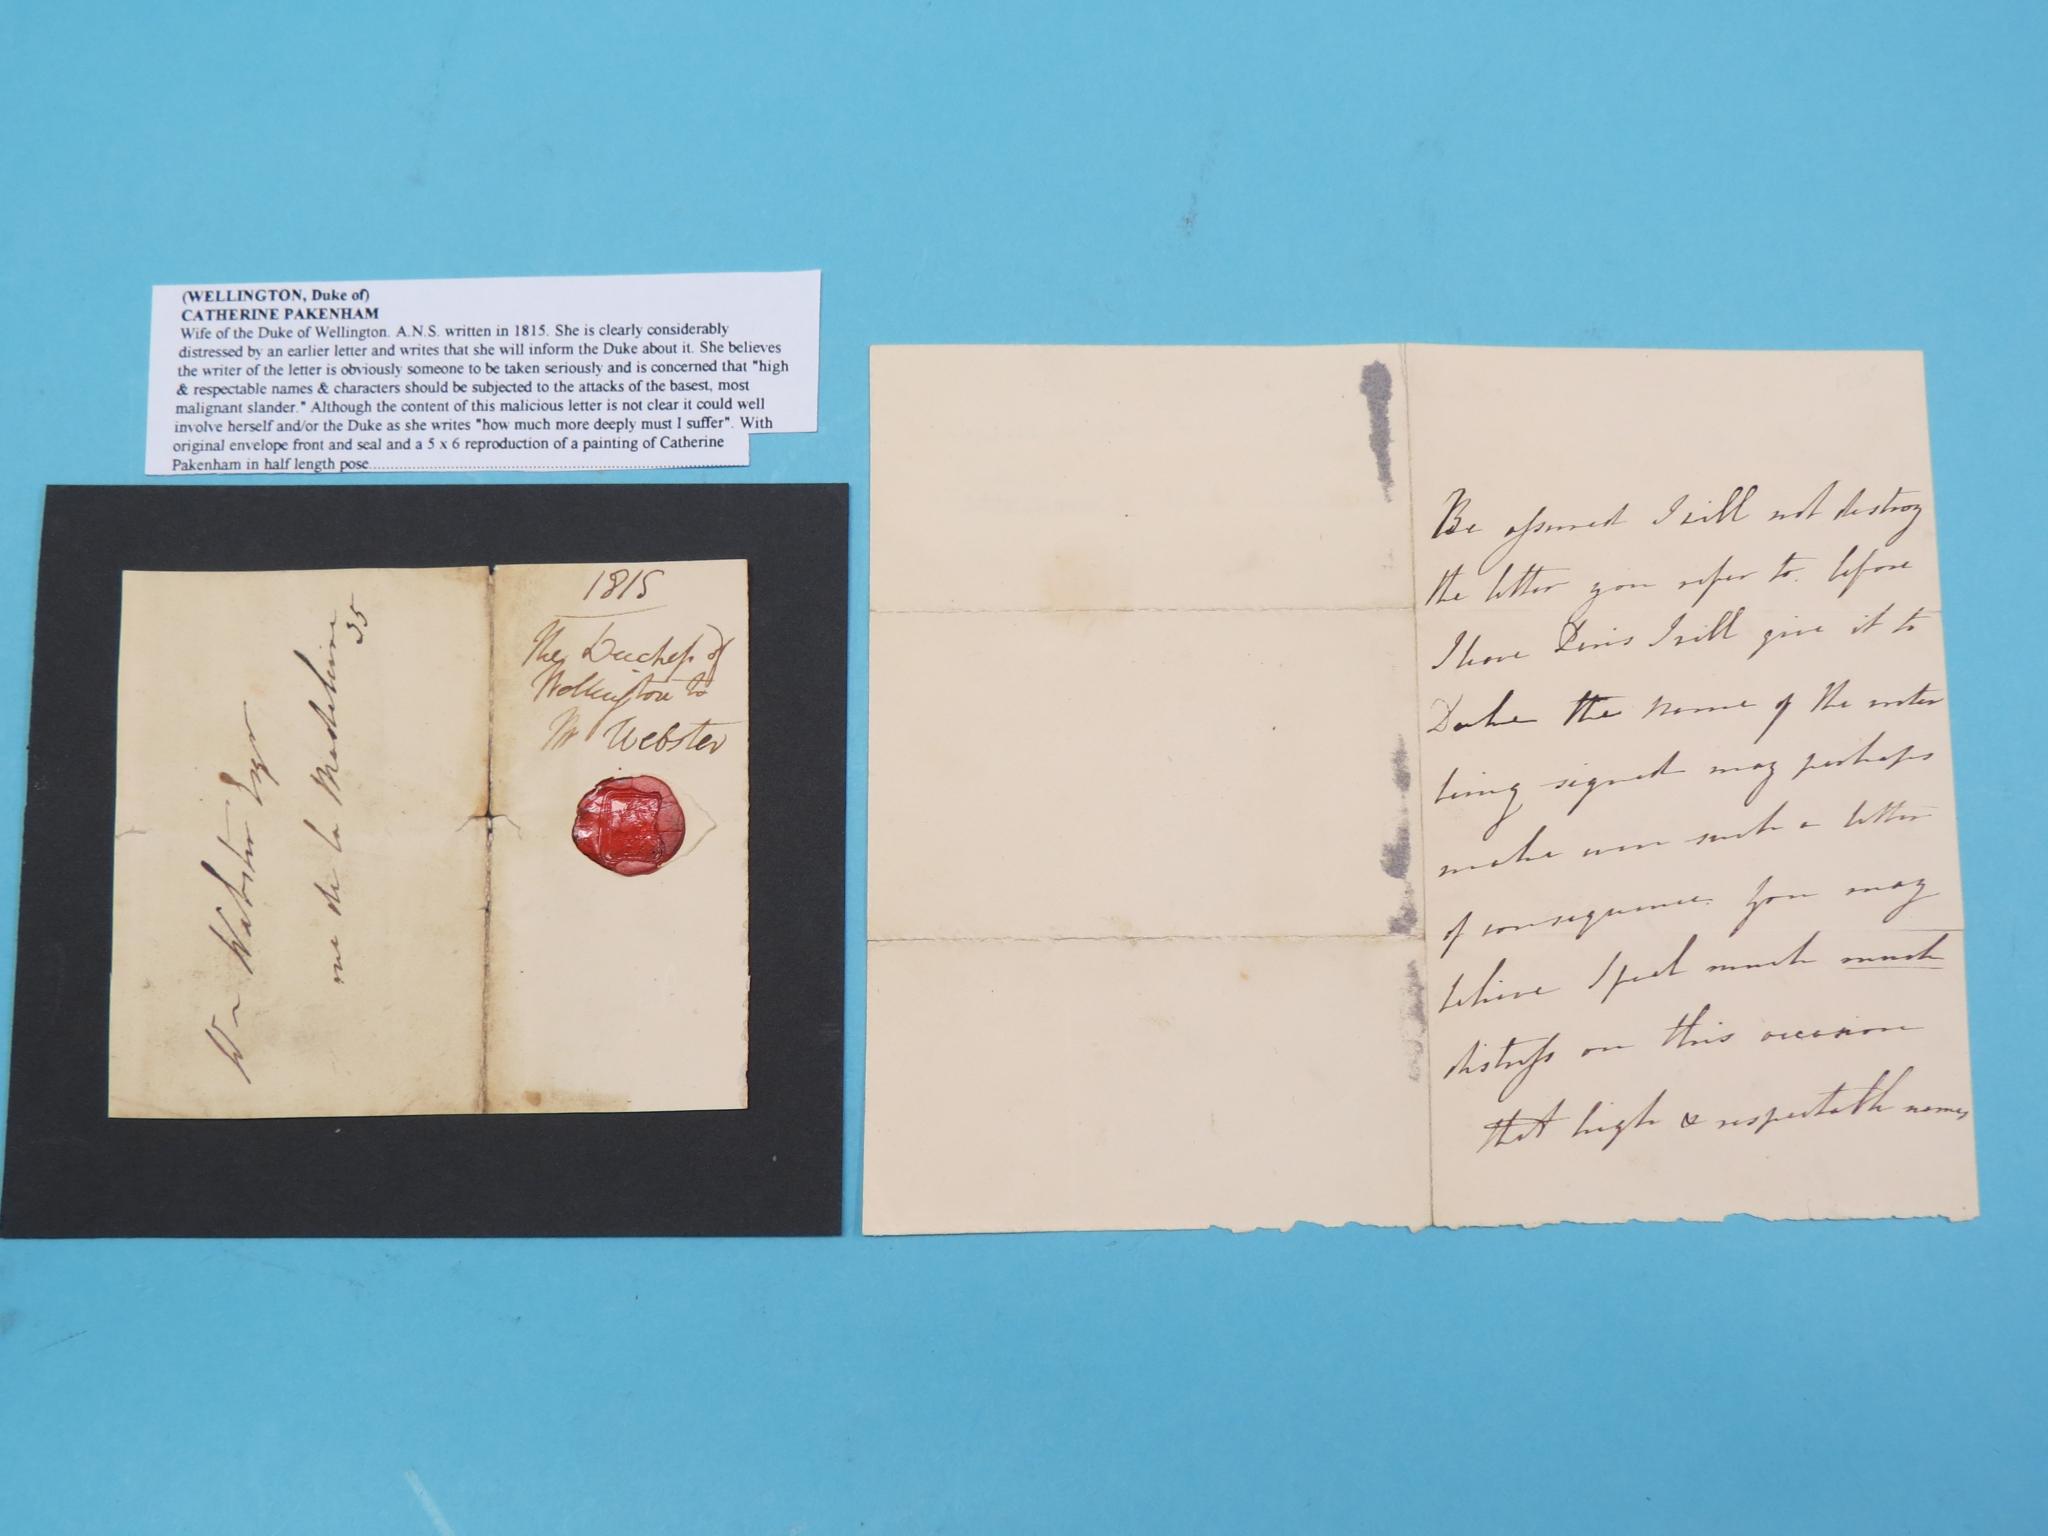 (WELLINGTON, Duke of)
CATHERINE PAKENHAM
Wife of the Duke of Wellington. A.N.S. written in 1815. She is clearly considerably
distressed by an earlier letter and writes that she will inform the Duke about it. She believes
the writer of the letter is obviously someone to be taken seriously and is concerned that "high
& respectable names & characters should be subjected to the attacks of the basest, most
malignant slander." Although the content of this malicious letter is not clear it could well
involve herself and/or the Duke as she writes "how much more deeply must I suffer". With
original envelope front and seal and a 5 x 6 reproduction of a painting of Catherine
Pakenham in half length pose
Wm Webster Esqr
rue de la Madeleine
35
1815
The Duchess of
Wellington to
Mr Webster
Be assured I will not destroy
the letter you refer to. before
I leave Paris I will give it to
Duke the name of the writer
being signed may perhaps
make even such a letter
of consequence. You may
believe I feel much much
distress on this occasion
that high & respectable names